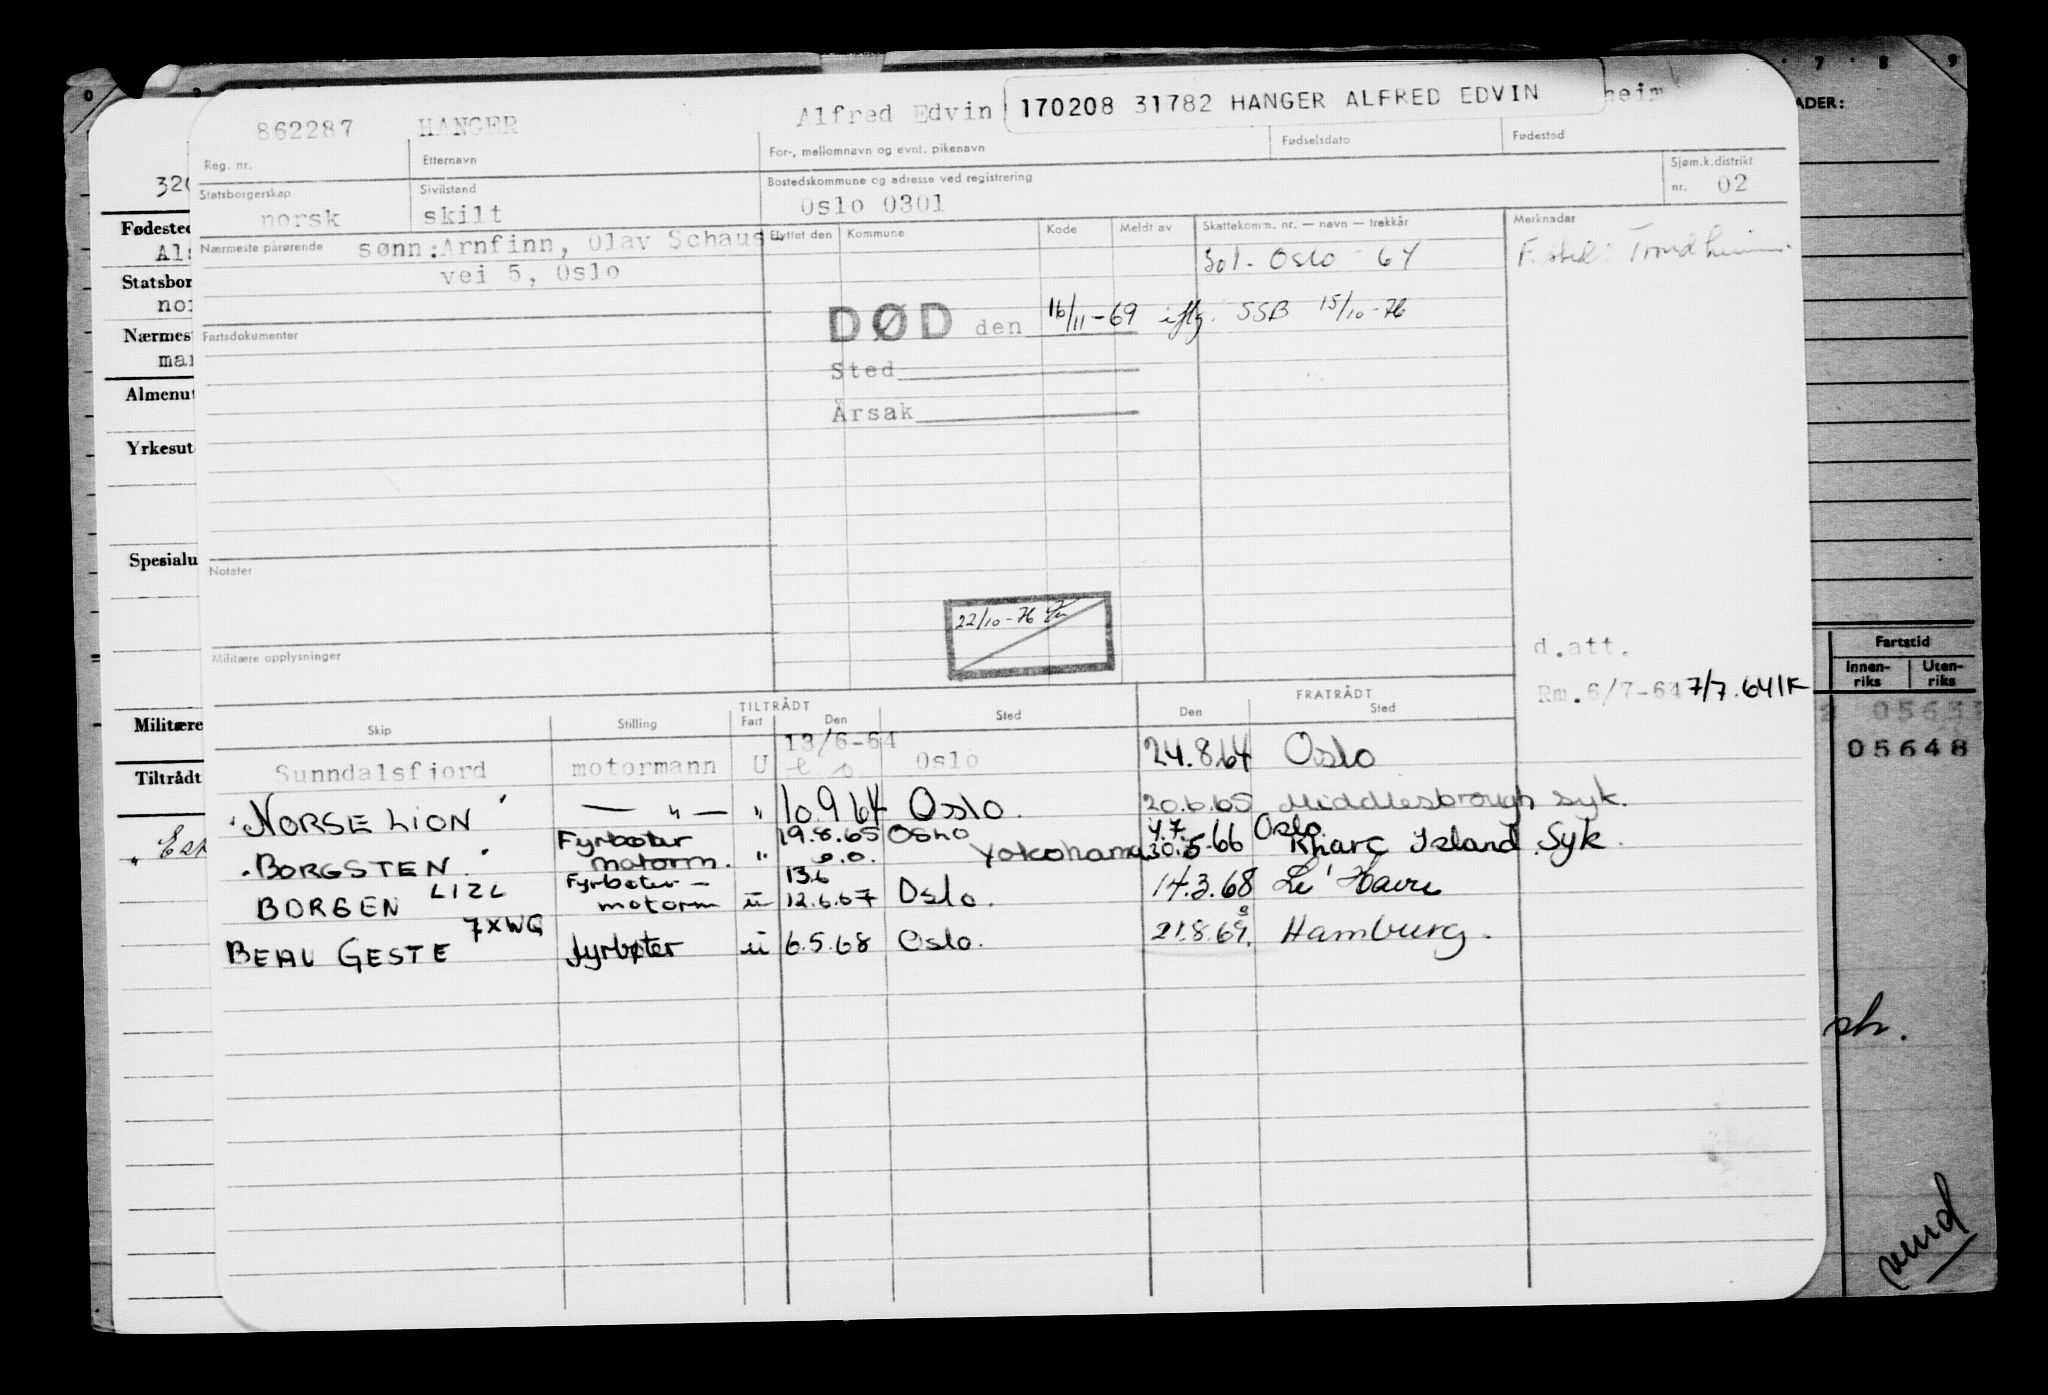 170208 31782 HANGER ALFRED EDVIN
862287 HANGER Alfred Edvin heim
Reg. nr. Etternavn For-, mellomnavn og evnl. pikenavn Fødselsdato Fødested
Statsborgerskap Sivilstand Bostedskommune og adresse ved registrering Sjøm.k.distrikt
norsk skilt Oslo 0301 nr. 02
Nærmeste pårørende sønn: Arnfinn, Olav Schaus
vei 5, Oslo
Flyttet den Kommune Kode Meldt av Skattekomn. nr. — navn — trekkår Merknader
301 - Oslo - 64 F.sted: Trondheim
DØD den 16/11-69 iflg. SSB 15/10-76
Fartsdokumenter
Sted
Årsak
Notater
22/10-76
Militære opplysninger
d.att.
Rm.6/7-64 7/7.64 IK
TILTRÅDT FRATRÅDT
Skip Stilling Fart Den Sted Den Sted
Sunndalsfjord motormann U 13/6-64 Oslo 24.8.64 Oslo
"NORSE LION" — " — " 10.9.64 Oslo. 20.6.65 Middlesbrough syk.
"BORGSTEN" Fyrbøter motorm. " 19.8.65 Oslo Yokohama 4.7. 30.5-66 Oslo Kharg Island Syk.
BORGEN LIZL Fyrbøter - motorm u 13.6 12.6.67 Oslo. 14.3.68 Le'Havre
BEAU GESTE 7XWG fyrbøter u 6.5.68 Oslo. 21.8.69. Hamburg.
320
Fødested
Als
Statsbor
nor
Nærmest
mar
Almenut
Yrkesut
Spesialu
Militære
Tiltrådt
7 8 9
ADER:
Fartstid
Innen-riks Uten-riks
05648